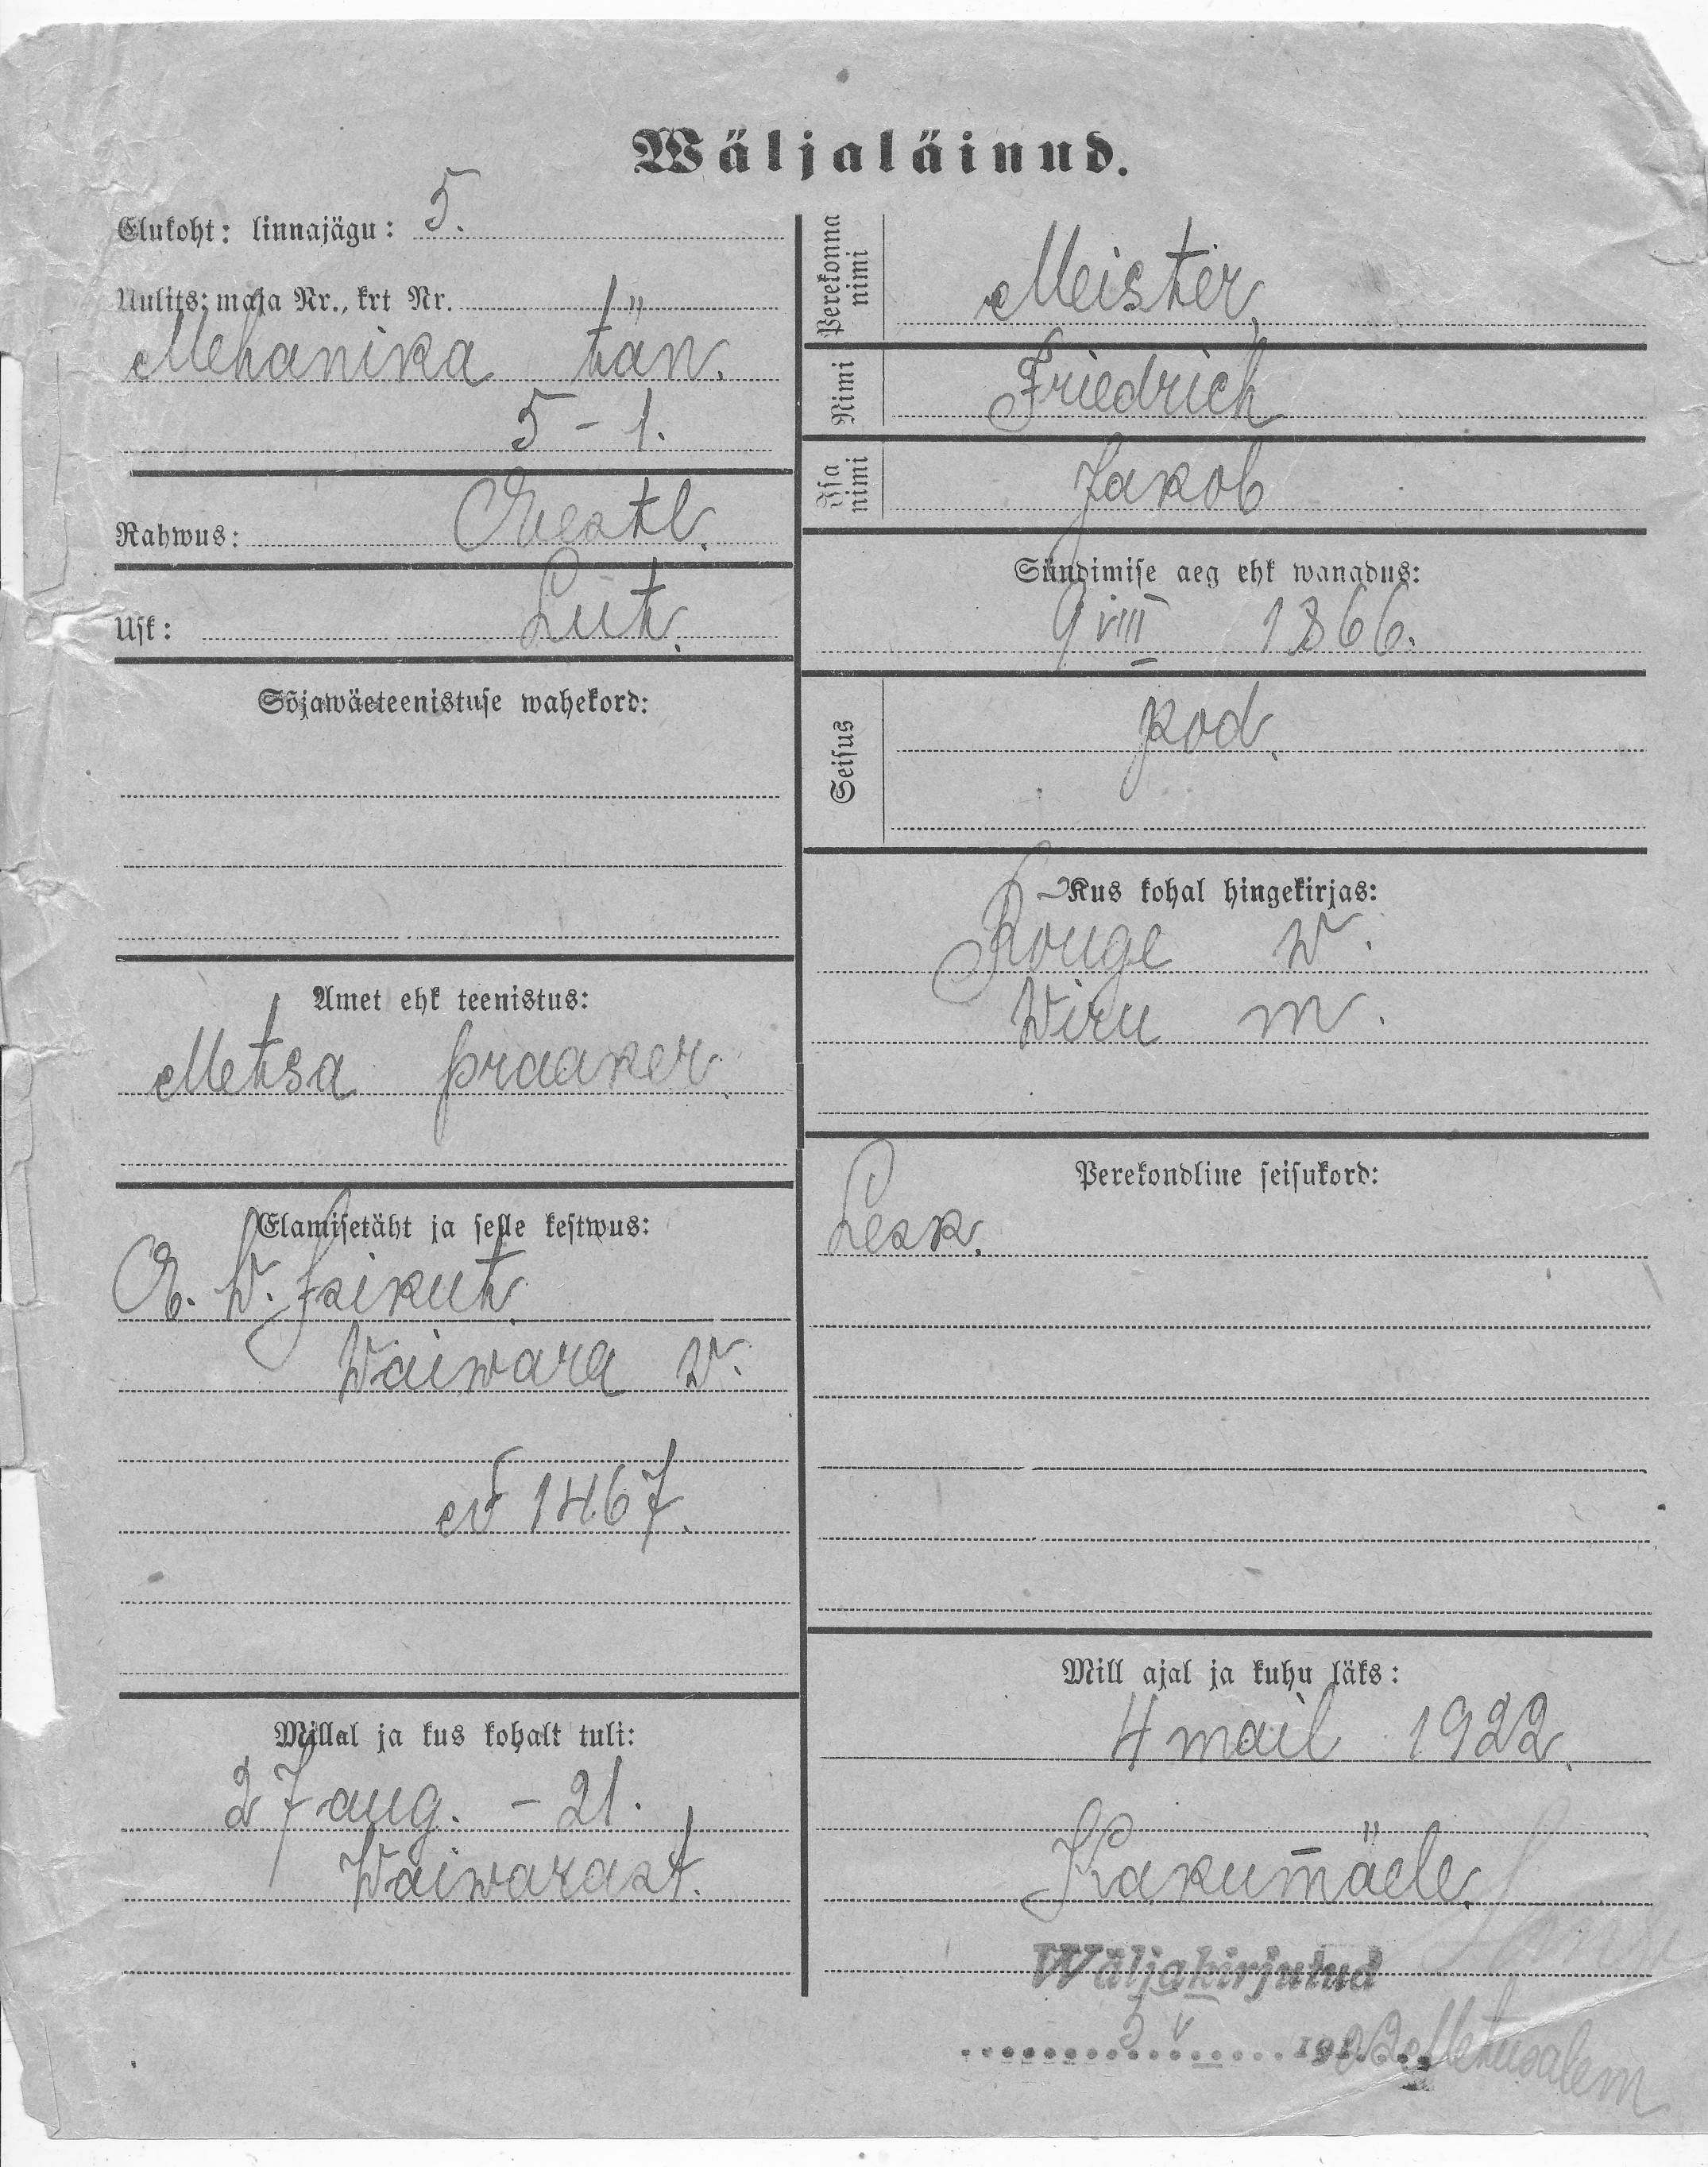 Wäljaläinud.
Elukoht: linnajägu: 5.
Uulits: maja Nr., krt Nr.
Mehanika tän.
5 - 1.
Rahwus: Eestl.
Usk: Lut.
Sõjawäeteenistuse wahekord:
Amet ehk teenistus:
Metsa praaker
Elamisetäht ja selle kestwus:
E. W. Isikut.
Waiwara w.
№ 1467.
Millal ja kus kohalt tuli:
27 aug. - 21.
Waiwarast.
Perekonna nimi
Meister,
Nimi
Friedrich
Isa nimi
Jakob
Sündimise aeg ehk wanadus:
9 VIII 1866.
Seisus
kod.
Kus kohal hingekirjas:
Rouge w.
Wiru m.
Perekondline seisukord:
Lesk.
Mill ajal ja kuhu läks:
4 mail 1922.
Kakumäele.
Wäljakirjutud
5 V 192
Metusalem